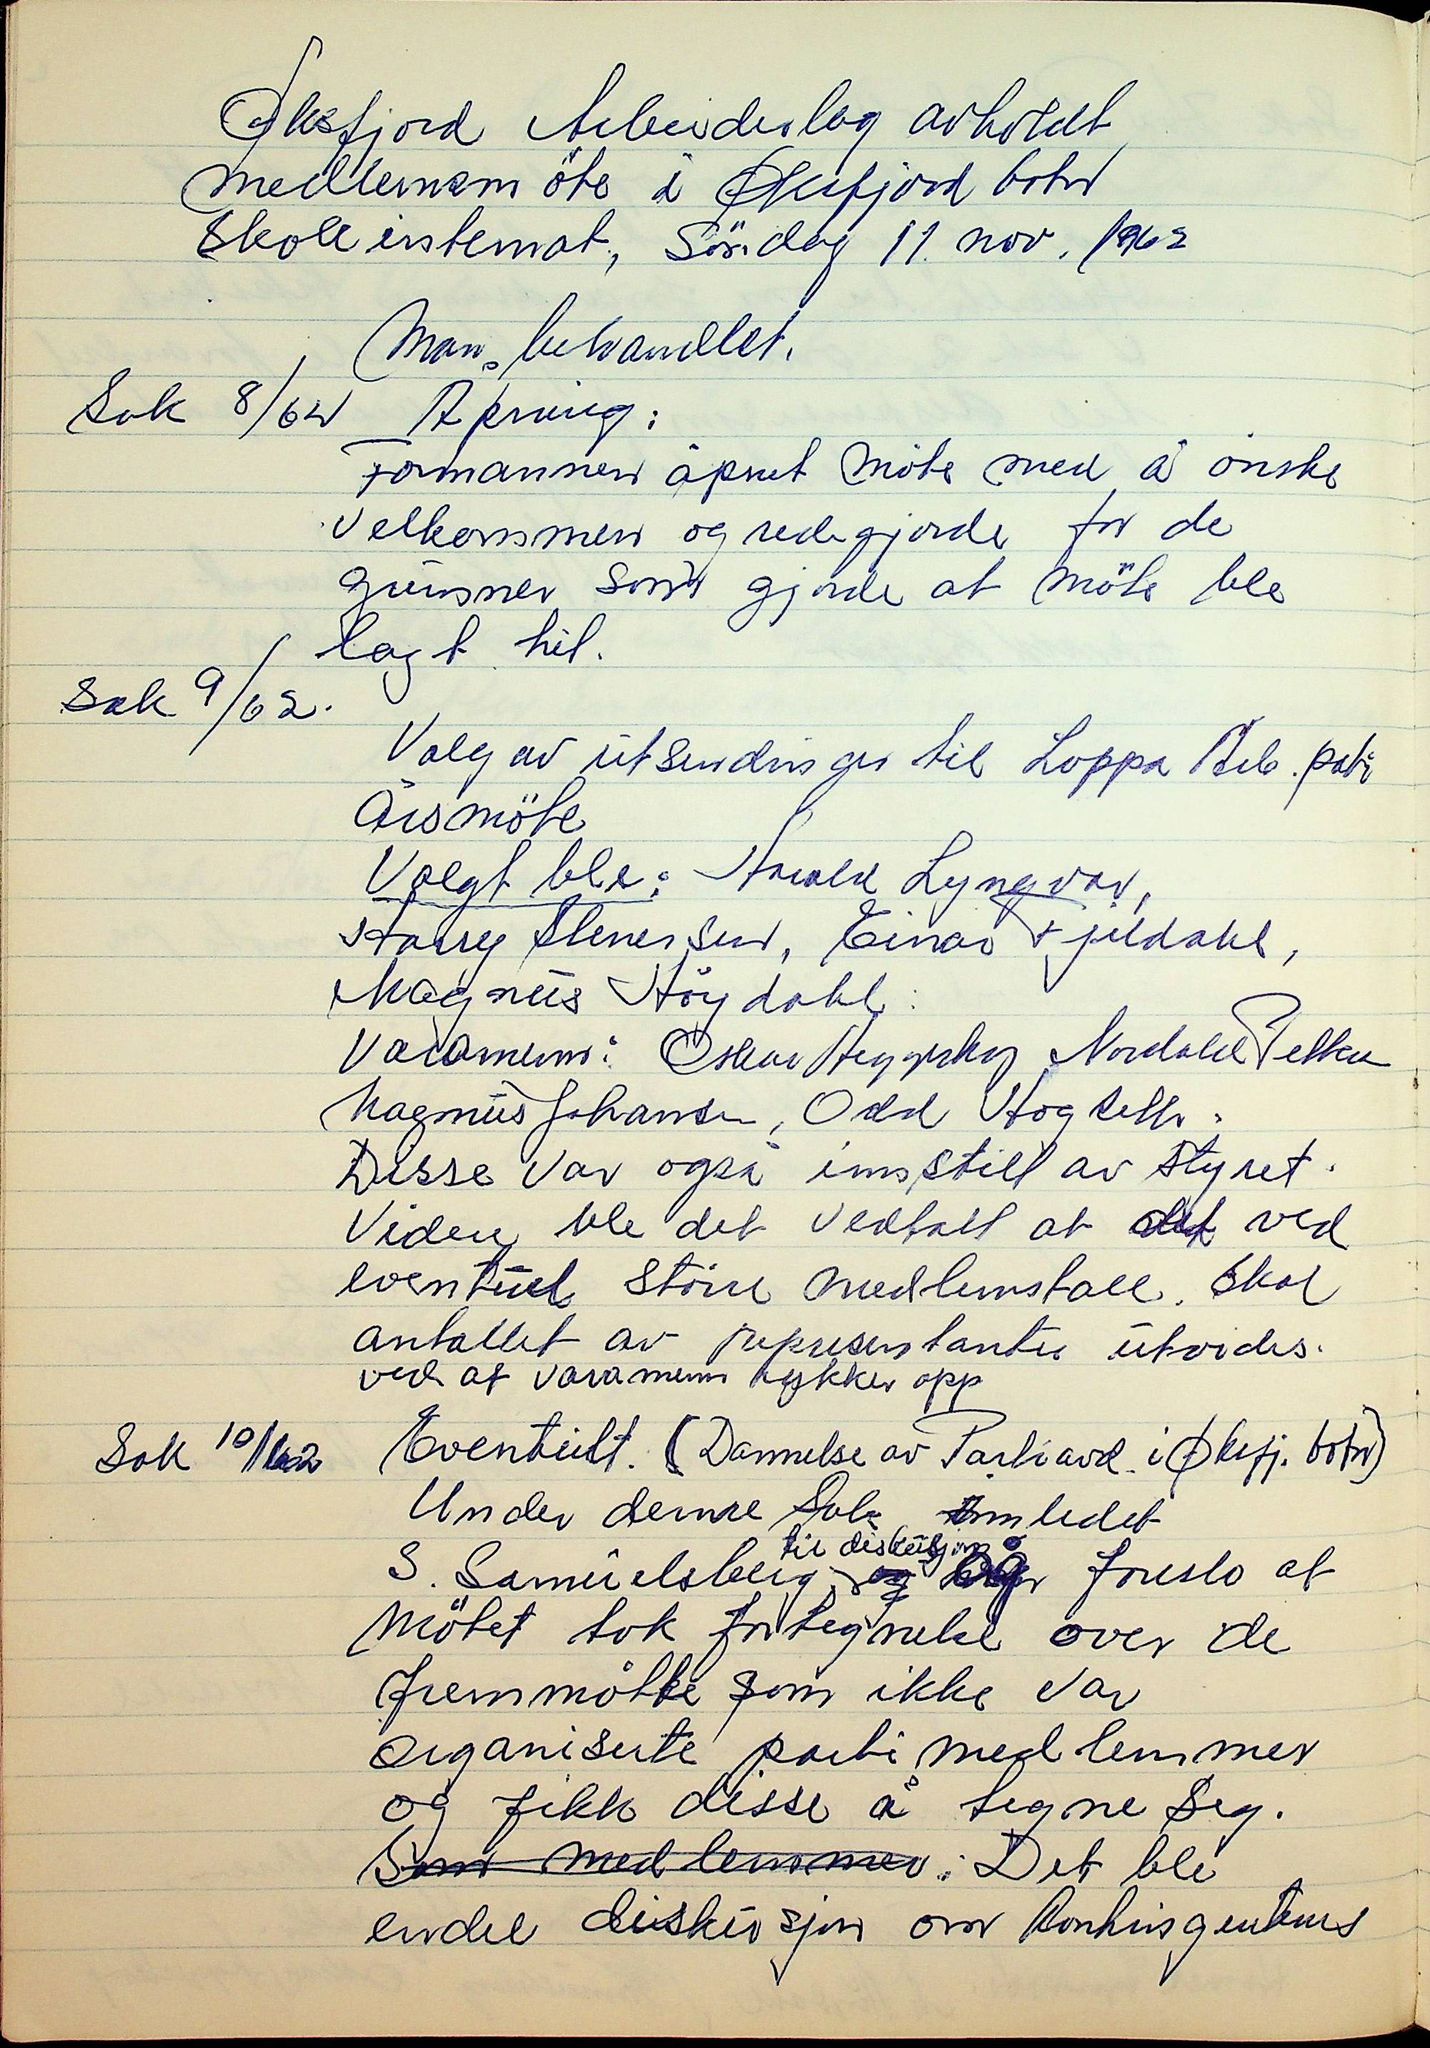 Øksfjord Arbeiderlag avholdt
medlemsmöte i Øksfjord botn
Skoleinternat, Söndag 11. nov. 1962
Man behandlet.
Sak 8/62 Åpning:
Formannen åpnet möte med å önske
velkommen og redegjorde for de
grunner som gjorde at möte ble
lagt hit.
Sak 9/62.
Valg av utsendinger til Loppa Arb. parti
Årsmöte
Valgt ble: Harald Lyngvar,
Harry Stenersen, Einar Fjeldahl,
Magnus Höydahl.
Varamenn: Oskar Nordahl Pettersen
Magnus Johansen, Odd
Disse var også innstilt av styret.
Videre ble det vedtatt at det ved
eventuel större medlemstall. skal
antallet av representanter utvides.
ved at varamenn rykker opp
Sak 10/62 Eventuelt. (Dannelse av Partiavd. i Øksfj. botn)
Under denne Sak innledet
S. Samuelsberg til diskusjon og foreslo at
Mötet tok fortegnelse over de
fremmötte som ikke var
organiserte parti medlemmer
og fikk disse å tegne seg.
Som medlemmer. Det ble
endel diskusjon om kontingentens